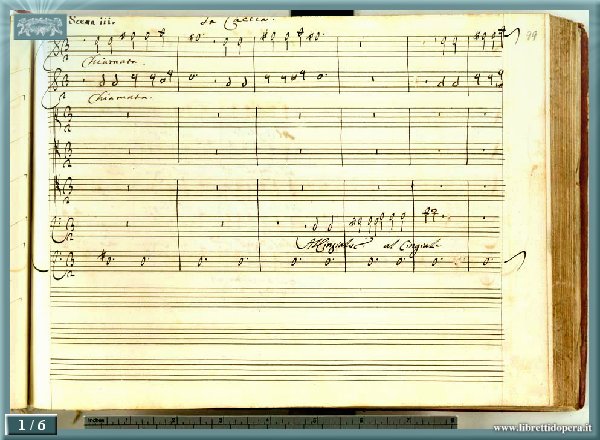 Scena iii.
La Caccia.
99
Chiamata.
Chiamata.
al Cingial.
1 / 6
www.librettidopera.it